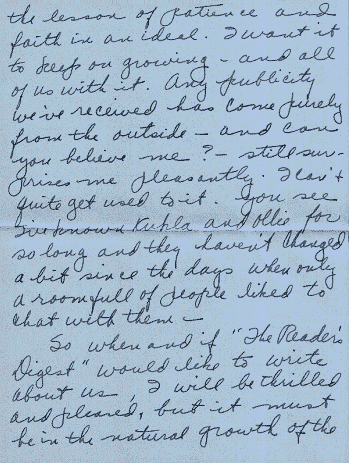 the lesson of patience and
faith in an ideal. I want it
to keep on growing - and all
of us with it. Any publicity
we've received has come purely
from the outside - and can
you believe me? - still sur-
prises me pleasantly. I can't
quite get used to it. You see
I've known Kukla and Ollie for
so long and they haven't changed
a bit since the days when only
a roomfull of people liked to
chat with them -
So when and if "The Reader's
Digest" would like to write
about us, I will be thrilled
and pleased, but it must
be in the natural growth of the